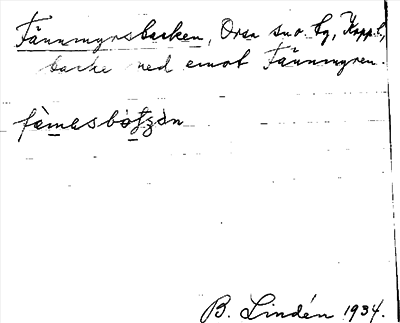 Fännmyrsbacken, Orsa sn o. tg, Kopp. l.,
backe ned emot Fännmyren.
B. Lindén 1934.